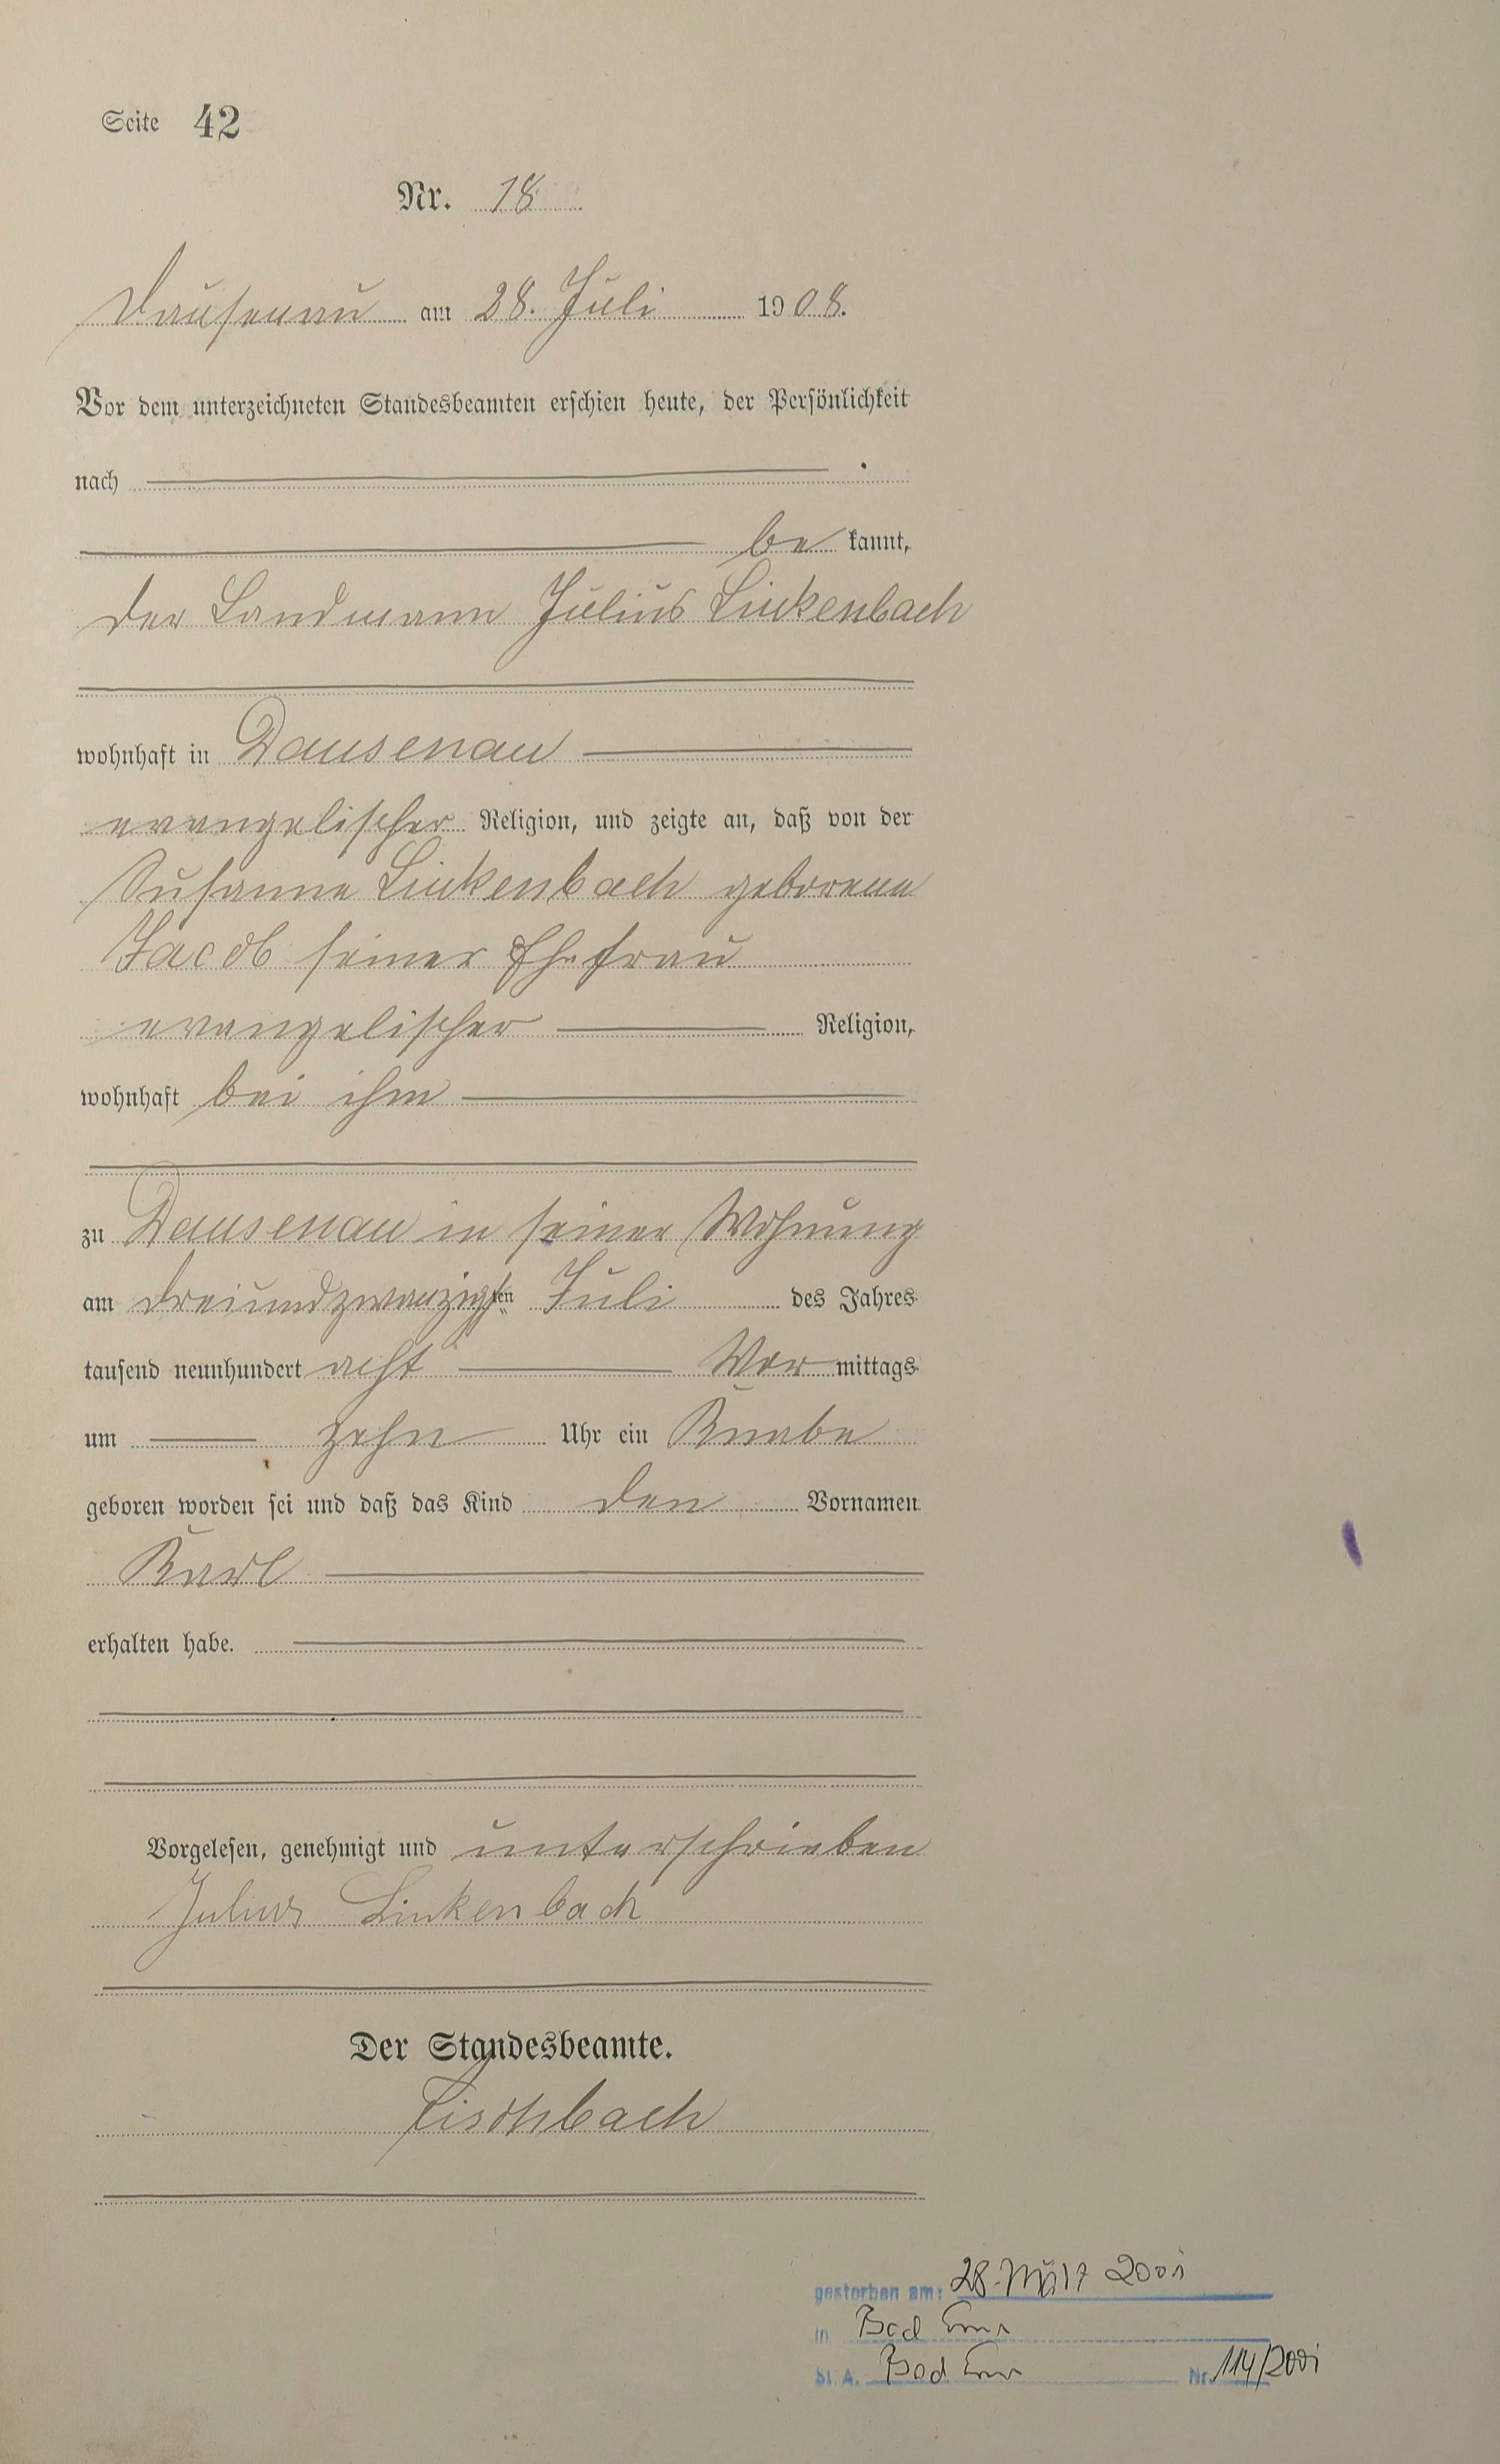 Seite 42
Nr. 18
Dausenau am 28. Juli 1908.
Vor dem unterzeichneten Standesbeamten erschien heute, der Persönlichkeit
nach
be kannt,
der Landmann Julius Linkenbach
wohnhaft in Dausenau
evangelischer Religion, und zeigte an, daß von der
Susanne Linkenbach geborene
Jacob seiner Ehefrau
evangelischer Religion,
wohnhaft bei ihm
zu Dausenau in seiner Wohnung
am dreiundzwanzigsten Juli des Jahres
tausend neunhundert acht Vor mittags
um zehn Uhr ein Knabe
geboren worden sei und daß das Kind den Vornamen
Karl
erhalten habe.
Vorgelesen, genehmigt und unterschrieben
Julius Linkenbach
Der Standesbeamte.
Fischbach
gestorben am: 28. März 2001
in Bad Ems
St. A. Bad Ems Nr. 114/2001